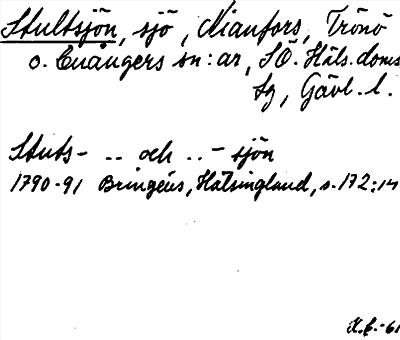 Stultsjön, sjö, Nianfors, Trönö
o. Enångers sn:ar, SÖ. Häls. doms
sg, Gävl. l.
Stuts- .. och .. - sjön
1790-91 Bringéus, Hälsingland, s. 172:14